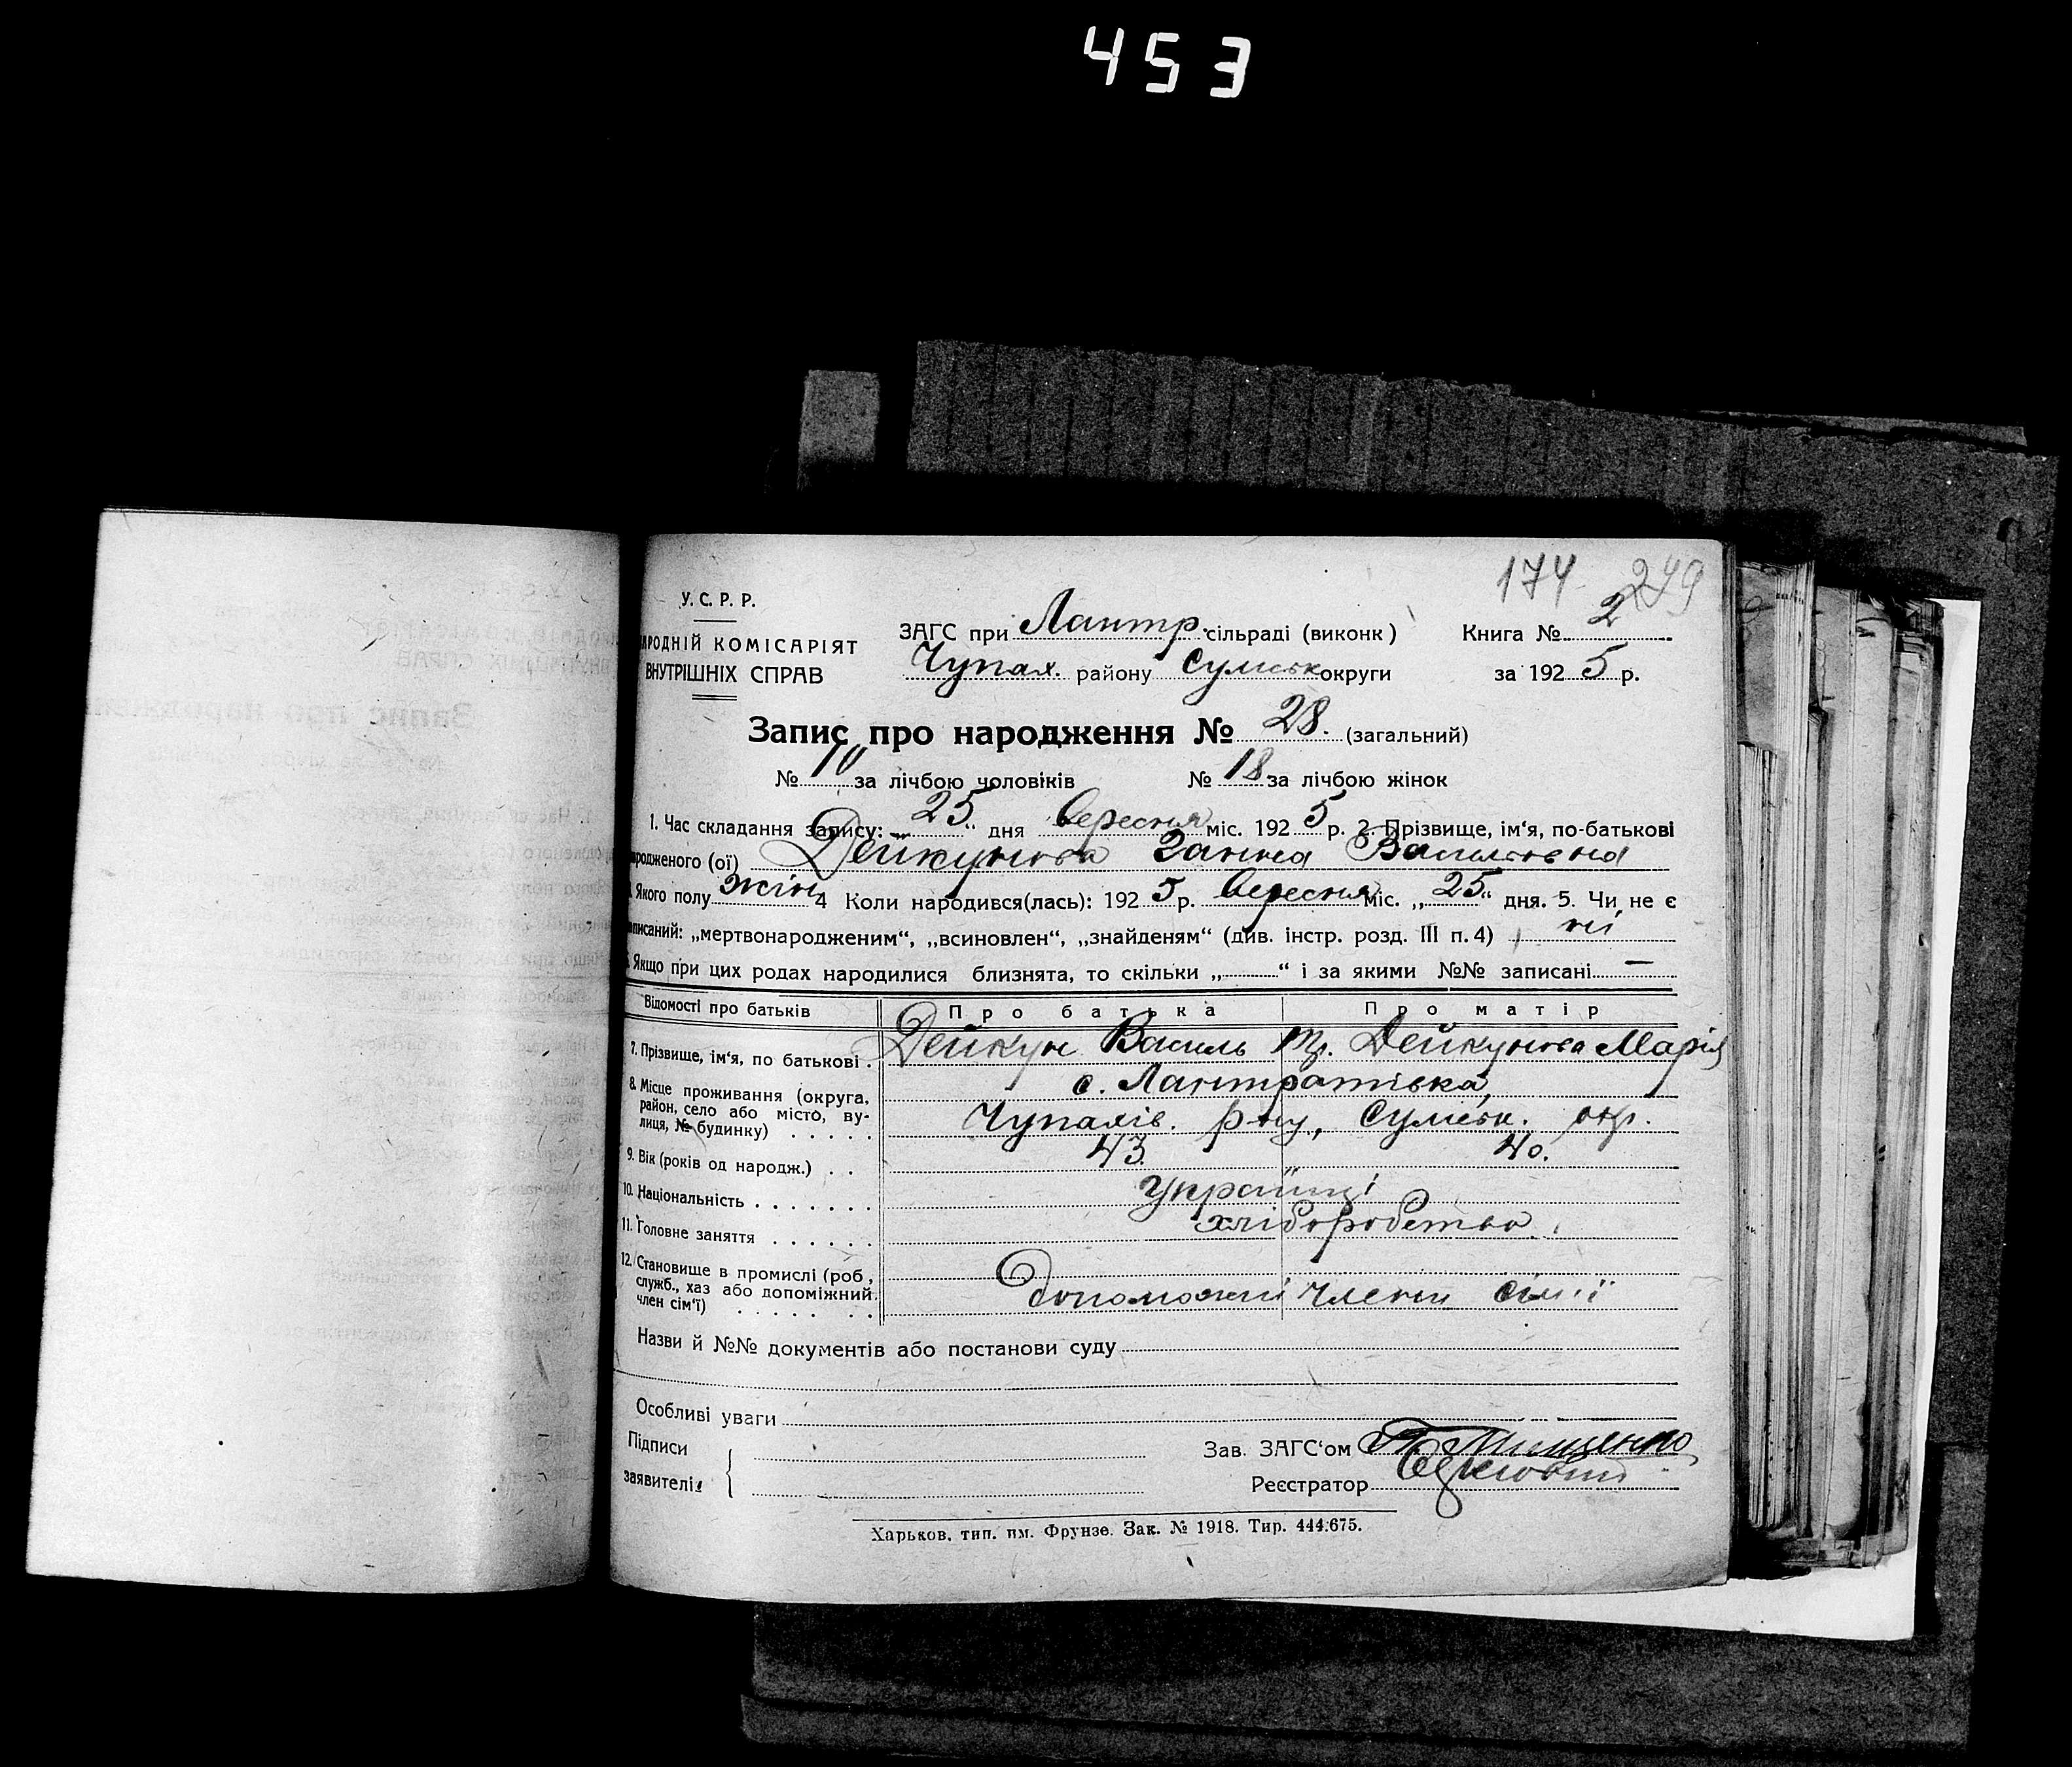 453
174 249
У. С. Р. Р.
АРОДНІЙ КОМІСАРІЯТ
ВНУТРІШНІХ СПРАВ
ЗАГС при Лантр. сільраді (виконк)
Книга № 2
Чупах. району Сумськ округи
за 1925 р.
Запис про народження № 28. (загальний)
№ 10 за лічбою чоловіків № 18 за лічбою жінок
1. Час складання запису: „25“ дня вересня міс. 1925 р. 2. Прізвище, ім'я, по-батькові
ародженого (ої) Дейкунова Ганна Васильовна
Якого полу жін. 4 Коли народився(лась): 1925 р. вересня міс. „25“ дня. 5. Чи не є
аписаний: „мертвонародженим“, „всиновлен“, „знайденям“ (див. інстр. розд. III п. 4) ні
Якщо при цих родах народилися близнята, то скільки „ “ і за якими №№ записані —
Відомості про батьків Про батька Про матір
7. Прізвище, ім'я, по батькові . Дейкун Василь Тр. Дейкунова Марія
8. Місце проживання (округа, район, село або місто, ву-лиця, № будинку) . . . . . с. Лантратівка,
Чупахів. р-ну, Сумськ. окр.
9. Вік (років од народж.) . . 43. 40.
10. Національність . . . . . . . Українці
11. Головне заняття . . . . . . хліборобство
12. Становище в промислі (роб., служб., хаз або допоміжний член сім'ї) . . . . . . Допоможні члени сімії
Назви й №№ документів або постанови суду
Особливі уваги
Підписи
заявителів
Зав. ЗАГС'ом
Реєстратор
Харьков, тип. им. Фрунзе. Зак. № 1918. Тир. 444.675.